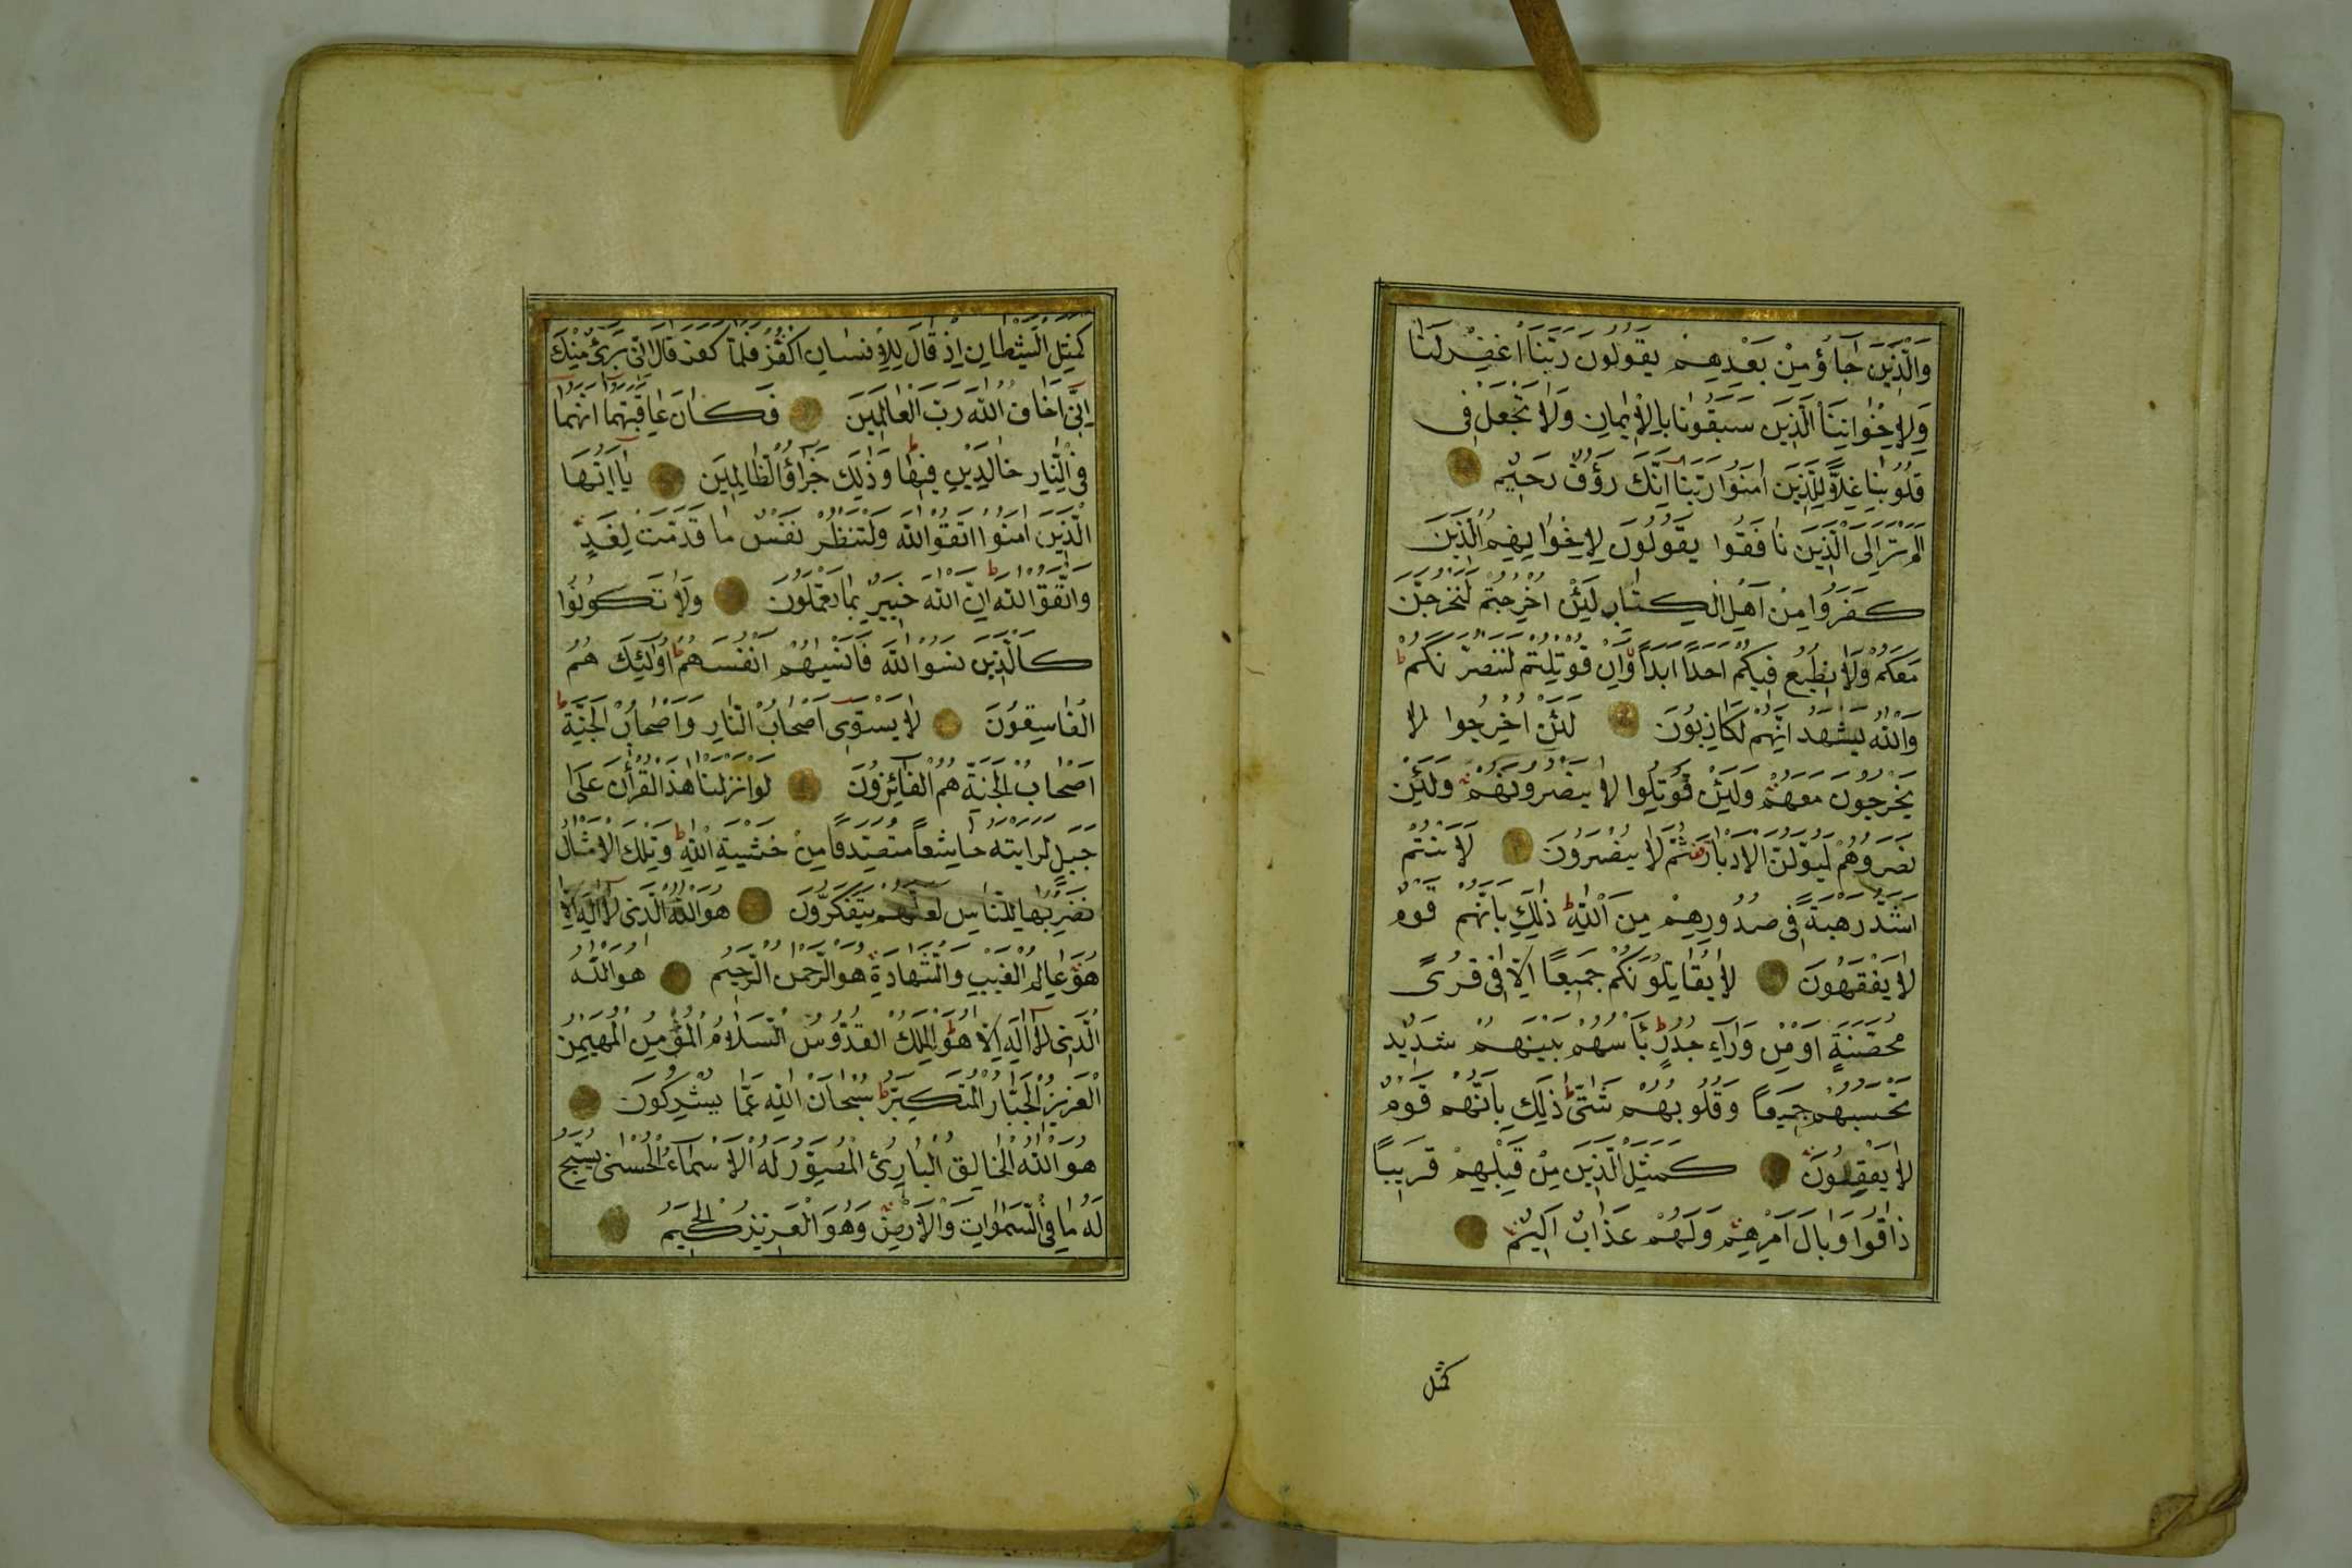 وَالَّذِينَ جَاؤُ مِنْ بَعْدِهِمْ يَقُولُونَ رَبَّنَا اغْفِرْ لَنَا
وَلِإِخْوَانِنَا الَّذِينَ سَبَقُونَا بِالْإِيمَانِ وَلَا تَجْعَلْ فِى
قُلُوبِنَا غِلًّا لِلَّذِينَ اٰمَنُوا رَبَّنَا اِنَّكَ رَؤُفٌ رَحِيمٌ
اَلَمْ تَرَ اِلَى الَّذِينَ نَافَقُوا يَقُولُونَ لِإِخْوَانِهِمُ الَّذِينَ
كَفَرُوا مِنْ اَهْلِ الْكِتَابِ لَئِنْ اُخْرِجْتُمْ لَنَخْرُجَنَّ
مَعَكُمْ وَلَا نُطِيعُ فِيكُمْ اَحَدًا اَبَدًا وَاِنْ قُوتِلْتُمْ لَنَنْصُرَنَّكُمْ ط
وَاللّٰهُ يَشْهَدُ اِنَّهُمْ لَكَاذِبُونَ لَئِنْ اُخْرِجُوا لَا
يَخْرُجُونَ مَعَهُمْ وَلَئِنْ قُوتِلُوا لَا يَنْصُرُونَهُمْ وَلَئِنْ
نَصَرُوهُمْ لَيُوَلُّنَّ الْاَدْبَارَ ثُمَّ لَا يُنْصَرُونَ لَاَنْتُمْ
اَشَدُّ رَهْبَةً فِى صُدُورِهِمْ مِنَ اللّٰهِ ط ذٰلِكَ بِاَنَّهُمْ قَوْمٌ
لَا يَفْقَهُونَ لَا يُقَاتِلُونَكُمْ جَمِيعًا اِلَّا فِى قُرًى
مُحَصَّنَةٍ اَوْ مِنْ وَرَآءِ جُدُرٍ ط بَأْسُهُمْ بَيْنَهُمْ شَدِيدٌ
تَحْسَبُهُمْ جَمِيعًا وَقُلُوبُهُمْ شَتّٰى ط ذٰلِكَ بِاَنَّهُمْ قَوْمٌ
لَا يَعْقِلُونَ كَمَثَلِ الَّذِينَ مِنْ قَبْلِهِمْ قَرِيبًا
ذَاقُوا وَبَالَ اَمْرِهِمْ وَلَهُمْ عَذَابٌ اَلِيمٌ
كمثل
كَمَثَلِ الشَّيْطَانِ اِذْ قَالَ لِلْاِنْسَانِ اكْفُرْ فَلَمَّا كَفَرَ قَالَ اِنِّى بَرِىءٌ مِنْكَ
اِنِّى اَخَافُ اللّٰهَ رَبَّ الْعَالَمِينَ فَكَانَ عَاقِبَتَهُمَا اَنَّهُمَا
فِى النَّارِ خَالِدَيْنِ فِيهَا ط وَذٰلِكَ جَزَاؤُ الظَّالِمِينَ يَا اَيُّهَا
الَّذِينَ اٰمَنُوا اتَّقُوا اللّٰهَ وَلْتَنْظُرْ نَفْسٌ مَا قَدَّمَتْ لِغَدٍ
وَاتَّقُوا اللّٰهَ ط اِنَّ اللّٰهَ خَبِيرٌ بِمَا تَعْمَلُونَ وَلَا تَكُونُوا
كَالَّذِينَ نَسُوا اللّٰهَ فَاَنْسٰيهُمْ اَنْفُسَهُمْ ط اُولٰئِكَ هُمُ
الْفَاسِقُونَ لَا يَسْتَوِى اَصْحَابُ النَّارِ وَاَصْحَابُ الْجَنَّةِ ط
اَصْحَابُ الْجَنَّةِ هُمُ الْفَائِزُونَ لَوْ اَنْزَلْنَا هٰذَا الْقُرْاٰنَ عَلٰى
جَبَلٍ لَرَاَيْتَهُ خَاشِعًا مُتَصَدِّعًا مِنْ خَشْيَةِ اللّٰهِ ط وَتِلْكَ الْاَمْثَالُ
نَضْرِبُهَا لِلنَّاسِ لَعَلَّهُمْ يَتَفَكَّرُونَ هُوَ اللّٰهُ الَّذِى لَا اِلٰهَ اِلَّا
هُوَ عَالِمُ الْغَيْبِ وَالشَّهَادَةِ هُوَ الرَّحْمٰنُ الرَّحِيمُ هُوَ اللّٰهُ
الَّذِى لَا اِلٰهَ اِلَّا هُوَ ط اَلْمَلِكُ الْقُدُّوسُ السَّلَامُ الْمُؤْمِنُ الْمُهَيْمِنُ
الْعَزِيزُ الْجَبَّارُ الْمُتَكَبِّرُ ط سُبْحَانَ اللّٰهِ عَمَّا يُشْرِكُونَ
هُوَ اللّٰهُ الْخَالِقُ الْبَارِئُ الْمُصَوِّرُ لَهُ الْاَسْمَاءُ الْحُسْنٰى يُسَبِّحُ
لَهُ مَا فِى السَّمٰوَاتِ وَالْاَرْضِ وَهُوَ الْعَزِيزُ الْحَكِيمُ